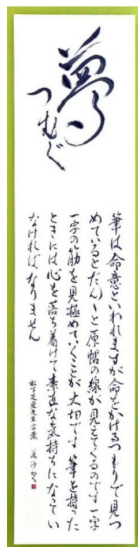 夢
つむぐ
筆は命毛といわれますが命をかけるつもりで見つ
めているとだんだんと原帖の線が見えてくるのです一字
一字の筋を見極めていくことが大切です 筆を持った
ときには心を落ち着けて素直な気持ちになってい
なければなりません